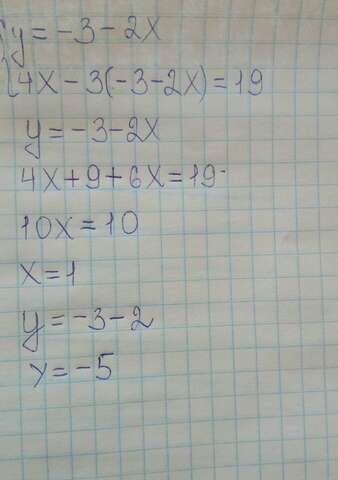 {y = -3 - 2x
{4x - 3(-3-2x) = 19
y = -3 - 2x
4x + 9 + 6x = 19
10x = 10
x = 1
y = -3 - 2
y = -5